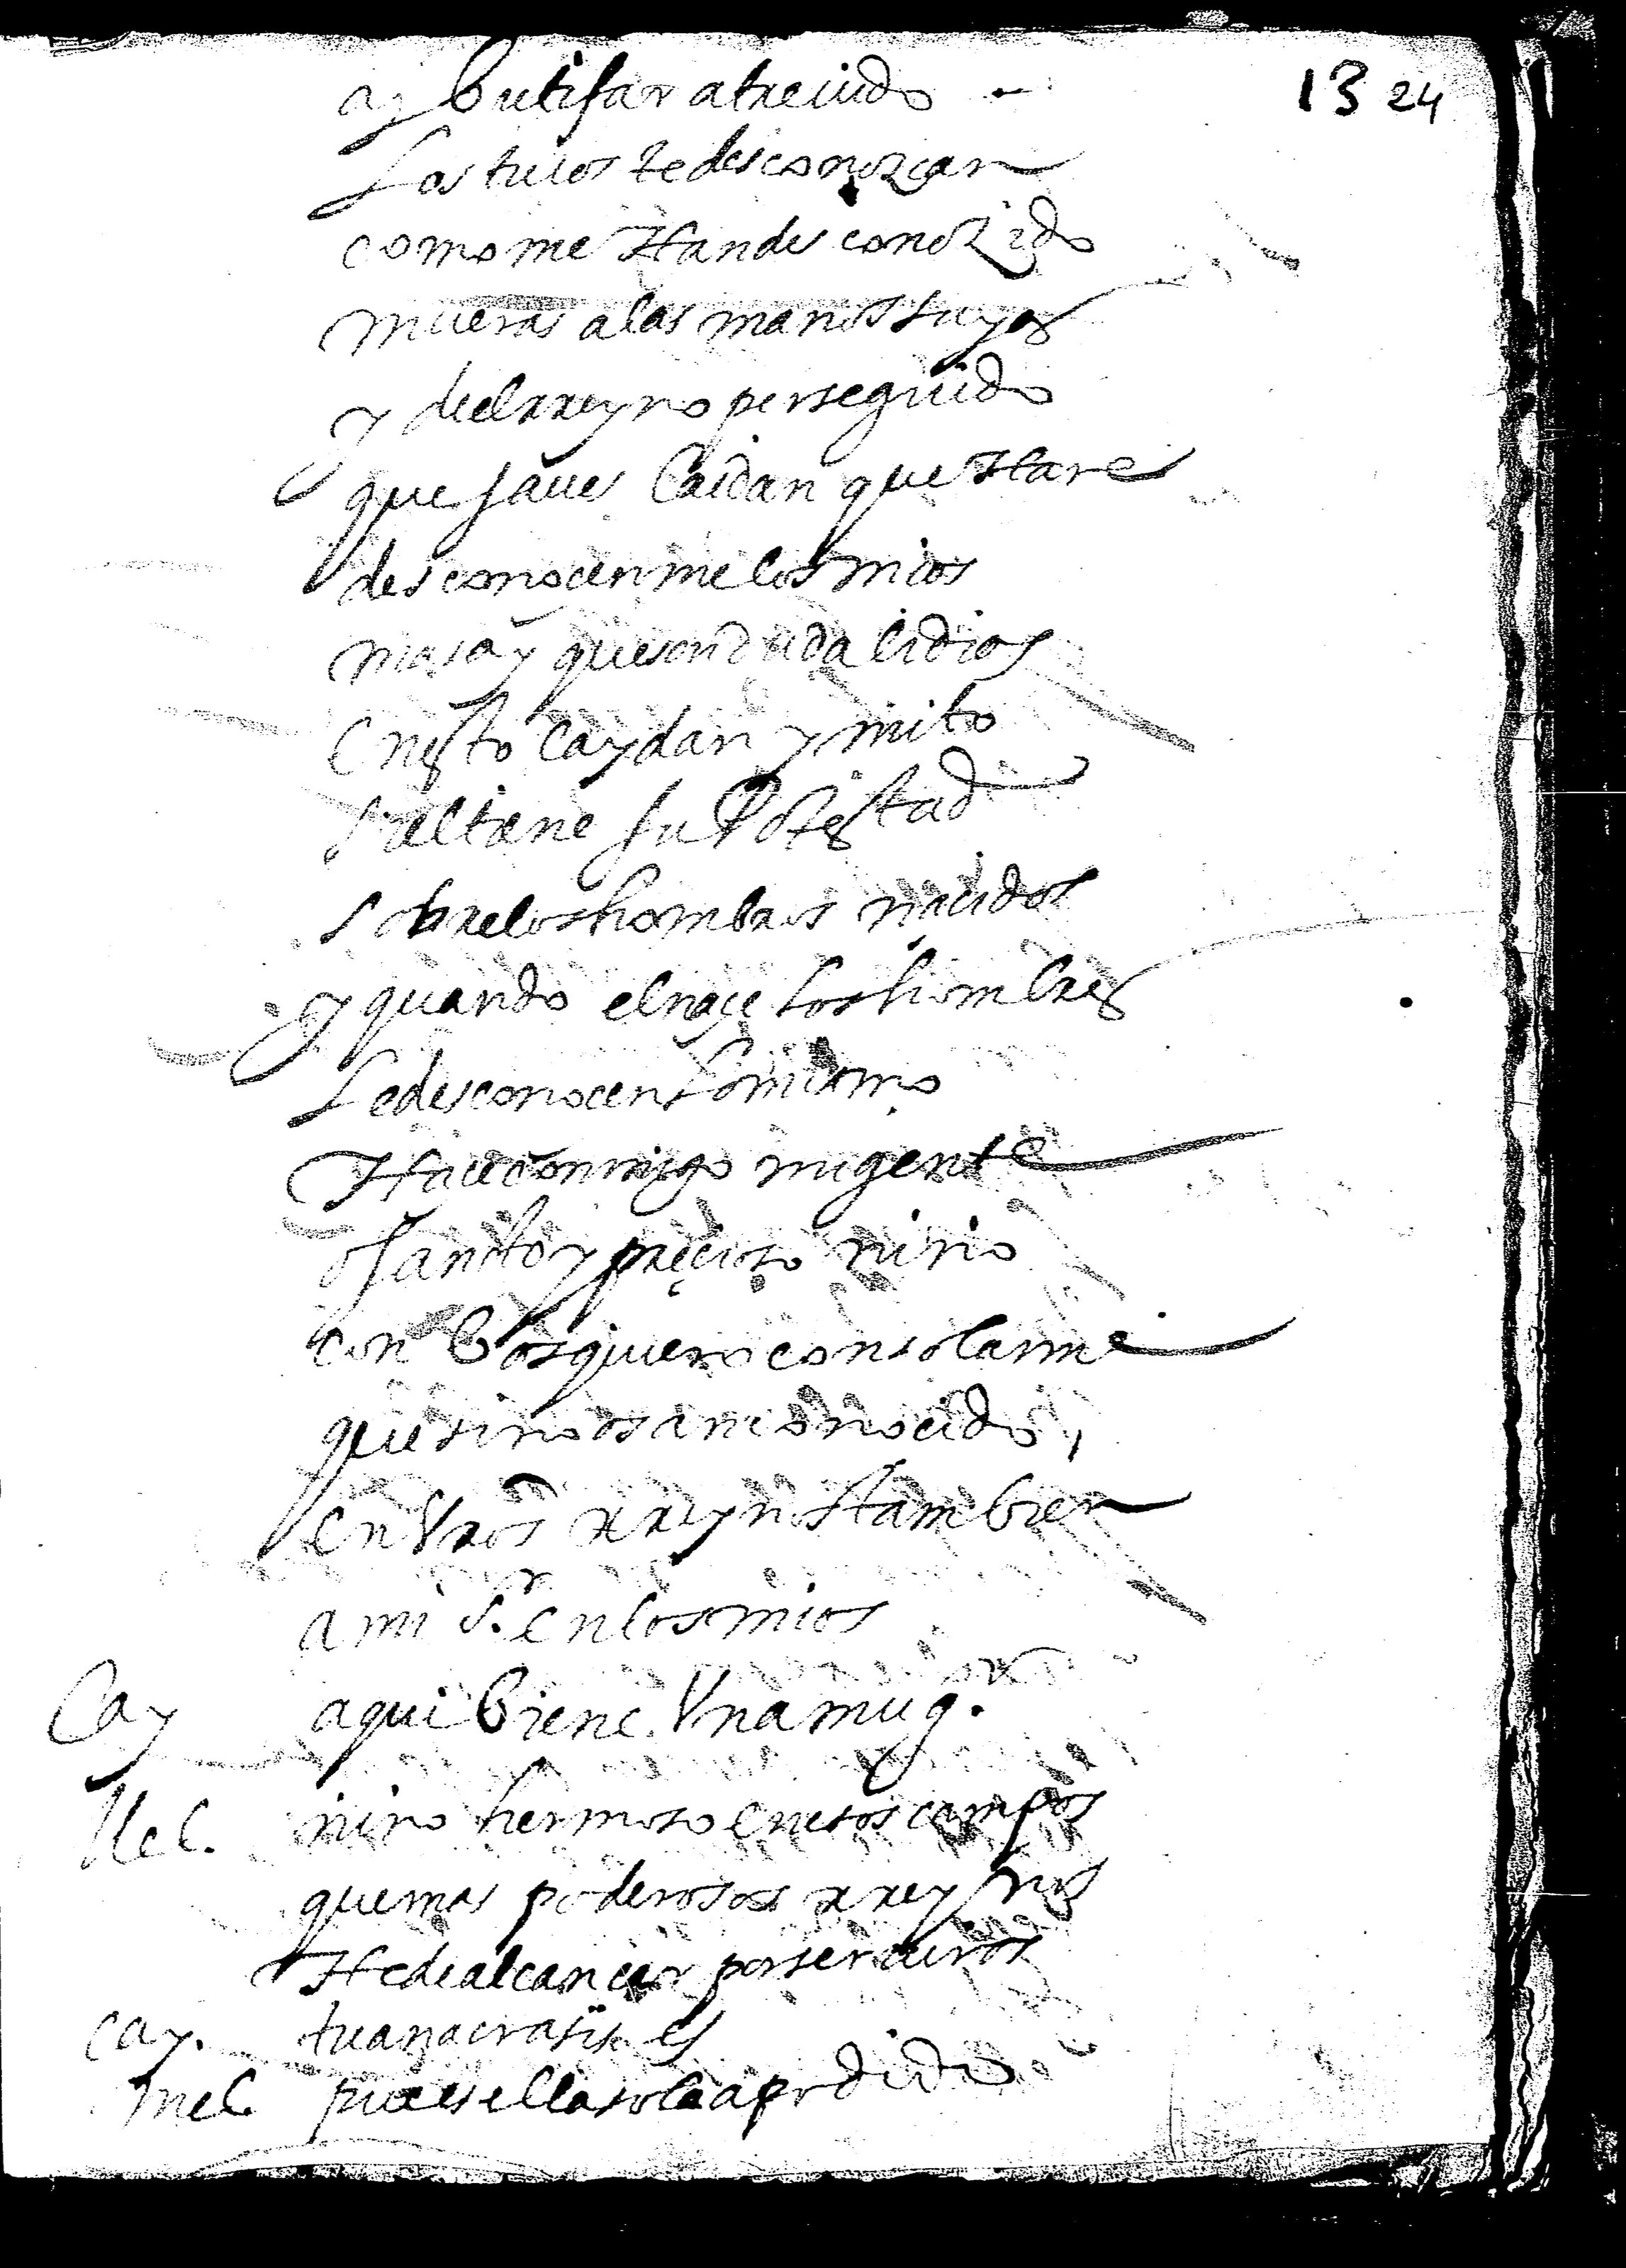 13 24
ay butifar atreuido
los tuios te desconozcan
como me Han desconozido
mueras a las manos suyas
y del rreyno perseguido
que haues Caidan que Hare
desconocenme los mios
mas ay que sin duda
en esto Caydan ymito
si el tiene su Potestad
sobre los hombres nacidos
y quando el naçe los hombres
le desconocen lo mismo
Hace conmigo mi gente
o sancto y precioso nino
con bos quiero consolarme
que si no os an conocido,
en Vros rreynos tambien
a mi Sr. en los mios
Cay aqui biene Vna mugr.
Mel. nino hermoso en esos campos
que mas poderosos rreynos
He de alcancar por seruiros
cay. tu anacrasis es
mel pues ella sola a podido